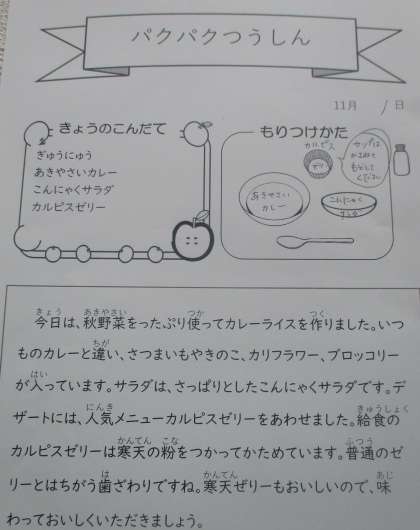 パクパクつうしん
11月 / 日
きょうのこんだて
ぎゅうにゅう
あきやさいカレー
こんにゃくサラダ
カルピスゼリー
もりつけかた
カルピス
ゼリー
カップは
かさねて
もどして
ください
あきやさい
カレー
こんにゃく
サラダ
今日は、秋野菜をったぷり使ってカレーライスを作りました。いつ
ものカレーと違い、さつまいもやきのこ、カリフラワー、ブロッコリー
が入っています。サラダは、さっぱりとしたこんにゃくサラダです。デ
ザートには、人気メニューカルピスゼリーをあわせました。給食の
カルピスゼリーは寒天の粉をつかってかためています。普通のゼ
リーとはちがう歯ざわりですね。寒天ゼリーもおいしいので、味
わっておいしくいただきましょう。